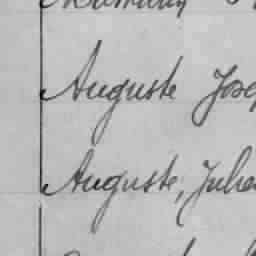 Auguste Jose
Auguste, Julie